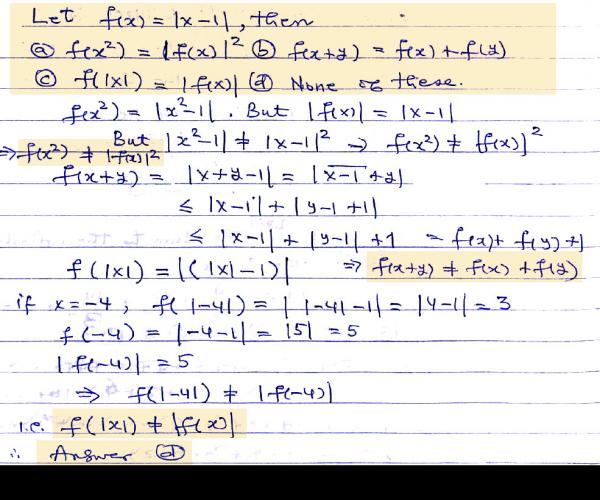 Let f(x) = |x-1|, then
ⓐ f(x²) = |f(x)|² ⓑ f(x+y) = f(x) + f(y)
ⓒ f(|x|) = |f(x)| ⓓ None of these.
f(x²) = |x²-1|. But |f(x)| = |x-1|
But |x²-1| ≠ |x-1|² → f(x²) ≠ |f(x)|²
⇒ f(x²) ≠ |f(x)|²
f(x+y) = |x+y-1| = |x-1 +y|
≤ |x-1| + |y-1 +1|
≤ |x-1| + |y-1| + 1 = f(x) + f(y) + 1
f(|x|) = |(|x|-1)| ⇒ f(x+y) ≠ f(x) + f(y)
if x = -4, f(|-4|) = ||-4|-1| = |4-1| = 3
f(-4) = |-4-1| = |5| = 5
|f(-4)| = 5
⇒ f(|-4|) ≠ |f(-4)|
i.e. f(|x|) ≠ |f(x)|
∴ Answer ⓓ